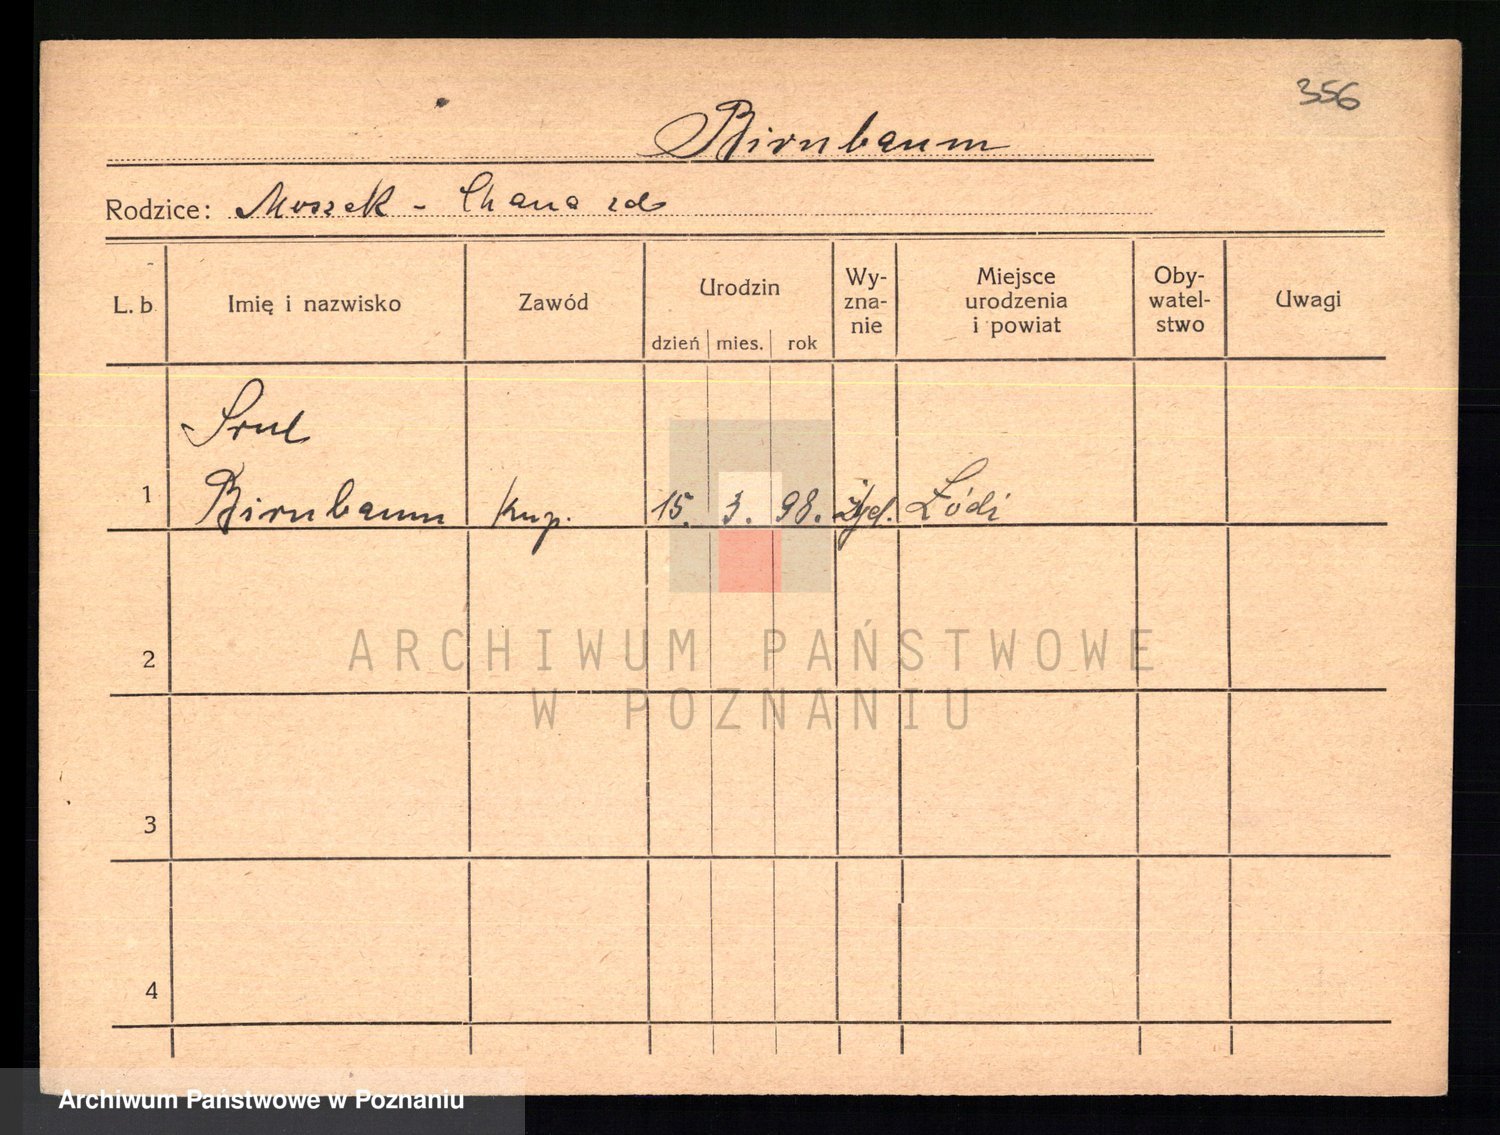 356
Birnbaum
Rodzice: Moszek - Chana zd
L. b.
Imię i nazwisko
Zawód
Urodzin
dzień
mies.
rok
Wy-
zna-
nie
Miejsce
urodzenia
i powiat
Oby-
watel-
stwo
Uwagi
Srul
1 Birnbaum kup. 15. 3. 98. żyd. Łódź
2
3
4
ARCHIWUM PAŃSTWOWE
W POZNANIU
Archiwum Państwowe w Poznaniu